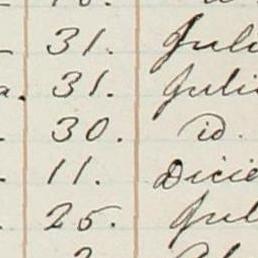 31. Juli
a. 31. Julio
30. id.
11. Dicie
25. Jul